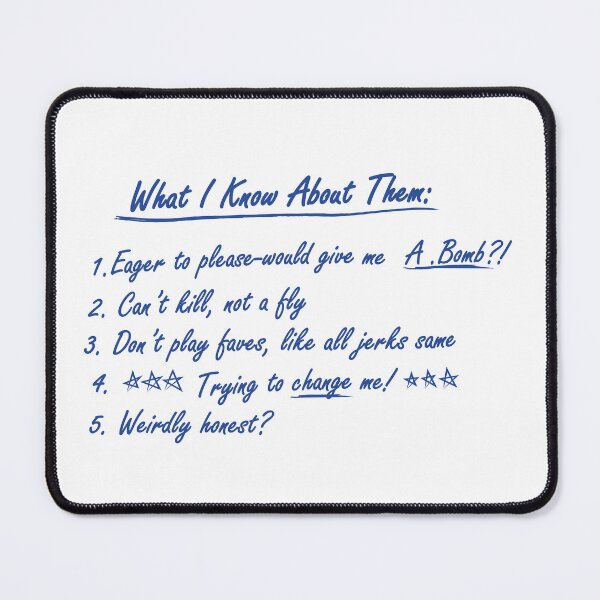 What I Know About Them:
1. Eager to please-would give me A .Bomb?!
2. Can't kill, not a fly
3. Don't play faves, like all jerks same
4. ☆☆☆ Trying to change me! ☆☆☆
5. Weirdly honest?